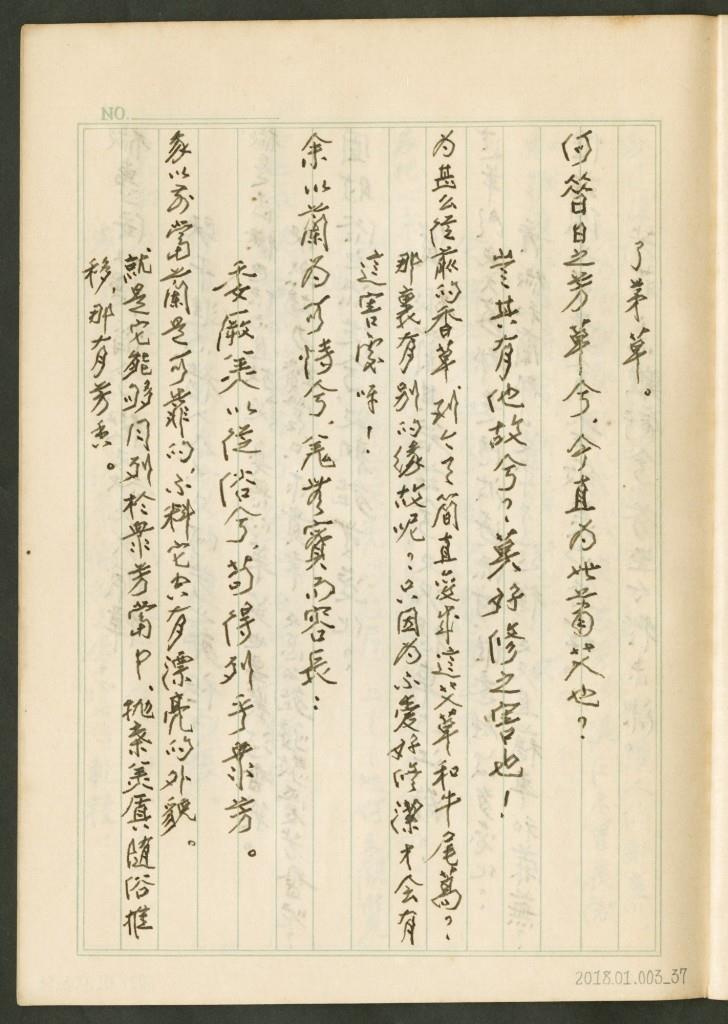 NO.
了茅草。
何昔日之芳草兮,今直为此萧艾也?
豈其有他故兮?莫好修之害也!
为甚么從前的香草到今天簡直变成這艾草和牛尾蒿?
那裏有别的缘故呢?只因为不爱好修潔才会有
這害處呀!
余以蘭为可恃兮,羌無實而容長:
委厥美以從俗兮,苟得列乎衆芳。
我以前當蘭是可靠的,不料它只有漂亮的外貌。
就是它能够同列於衆芳當中,抛棄美質随俗推
移,那有芳香。
2018.01.003_37